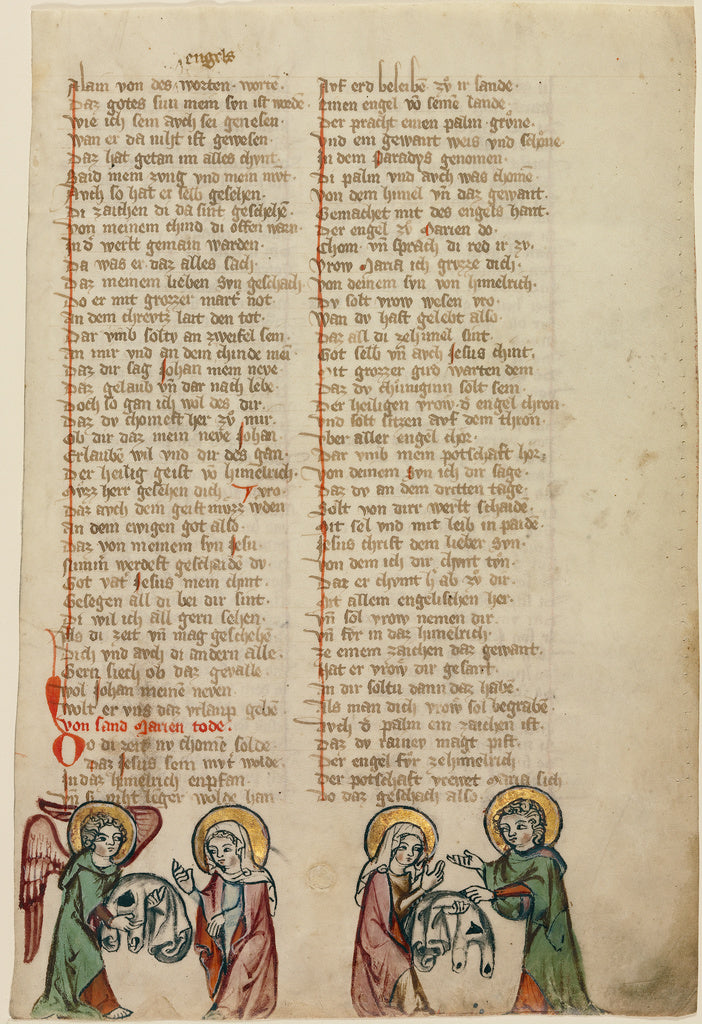 engels
Alain von des worten worte.
Daz gotes sun mein syn ist worde
Wie ich sein auch sei genesen.
Wan er da niht ist gewesen.
Daz hat getan im alles chunt.
Baid mein zung und mein mvt.
Auch so hat er selb gesehen.
Di zaichen di da sint geschehē.
Von meinem chind di offen warn.
werlt gemain warden.
Da was er daz alles sach.
Daz meinem lieben Syn geschach
Do er mit grozzer mart not.
An dem chrevtz lait den tot.
Dar vmb soltv an zweifel sein.
An mir vnd an dem chinde mei
Daz dir sag Johan mein neve
Daz gelaub vn dar nach lebe.
Doch so gan ich wol des dir.
Daz dv chomest her zv mir.
Ob dir daz mein neve Johan.
Erlaubē wil vnd dir des gan.
Der heilig geist vō himelrich.
herr gesehen dich
Daz auch dem geist mvzz wden
An dem ewigen got also.
Daz von meinem syn Jesu.
Nimm werdest geschaidē dv
Got vat Jesus mein chint.
Gesegen all di bei dir sint.
Di wil ich all gern sehen.
Als di zeit vn mag geschehē
Dich vnd auch di andern alle.
Gern siech ob daz gevalle.
wol Johan meinē neven
wolt er vns daz vrlaup gebē
von sand Marien tode.
Do di zeit nv chomē solde
Daz Jesus sein mvt wolde
In daz himelrich enpfan.
Vn si niht leger wolde han
Avf erd beleibē zv ir sande
Einen engel vō seinē lande.
Der pracht einen palm grvne.
Vnd ein gewant weis vnd schone
In dem Paradys genomen.
Di palm vnd auch was chomē
Von dem himel vn daz gewant.
Gemachet mit des engels hant.
Der engel zv Marien do.
Chom vn sprach di red ir zv.
Vrow Maria ich grvzze dich.
Von deinem syn von himelrich.
Dv solt vrow wesen vro.
Wan dv hast gelebt also.
Daz all di ze himel sint.
Got selb vn auch Jesus chint.
Mit grozzer gird warten dein
Daz dv chuniginn solt sein.
Der heiligen vrow d engel chron
Vnd solt sitzen avf dem thron.
Vber aller engel chor.
Dar vmb mein potschaft hor.
Von deinem Syn ich dir sage.
Daz dv an dem dritten tage.
Solt von dirr werlt schaide.
Mit sel vnd mit leib in paide.
Jesus christ dein lieber syn.
Von dem ich dir chunt tvn.
Daz er chvmt h ab zv dir.
Mit allem engelischen her.
Vn sol vrow nemen dir
Vn fvr in daz himelrich.
Ze einem zaichen daz gewant.
Hat er vrow dir gesant.
In dir soltu dann daz habē.
Als man dich vrow sol begrabē
Auch d palm ein zaichen ist.
Daz dv rainev magt pist.
Der engel fvr ze himelrich
Der potschaft vrewet Maria sich
Do daz geschach also.